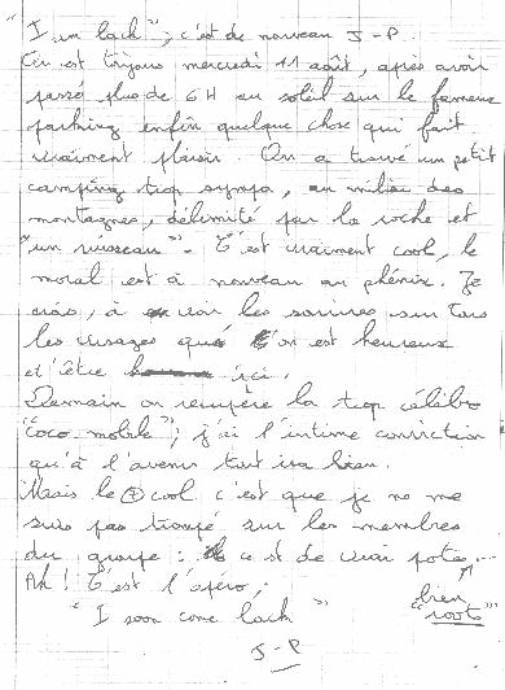 "I am back"; c'est de nouveau J-P.
On est toujours mercredi 11 août, après avoir
passé plus de 6H au soleil sur le fameux
parking enfin quelque chose qui fait
vraiment plaisir. On a trouvé un petit
camping trop sympa, au milieu des
montagnes, délimité par la roche et
"un ruisseau". C'est vraiment cool, le
moral est à nouveau au phénix. Je
crois, à voir les sourires sur tous
les visages que l'on est heureux
et l'être ici.
Demain on récupère la trop célèbre
"coco-mobile"; j'ai l'intime conviction
qu'à l'avenir tout ira bien.
Mais le + cool c'est que je ne me
suis pas trompé sur les membres
du groupe : ce st de vrai pote...
Ah! C'est l'apéro;
bien
"I soon come back" "roots"
J-P